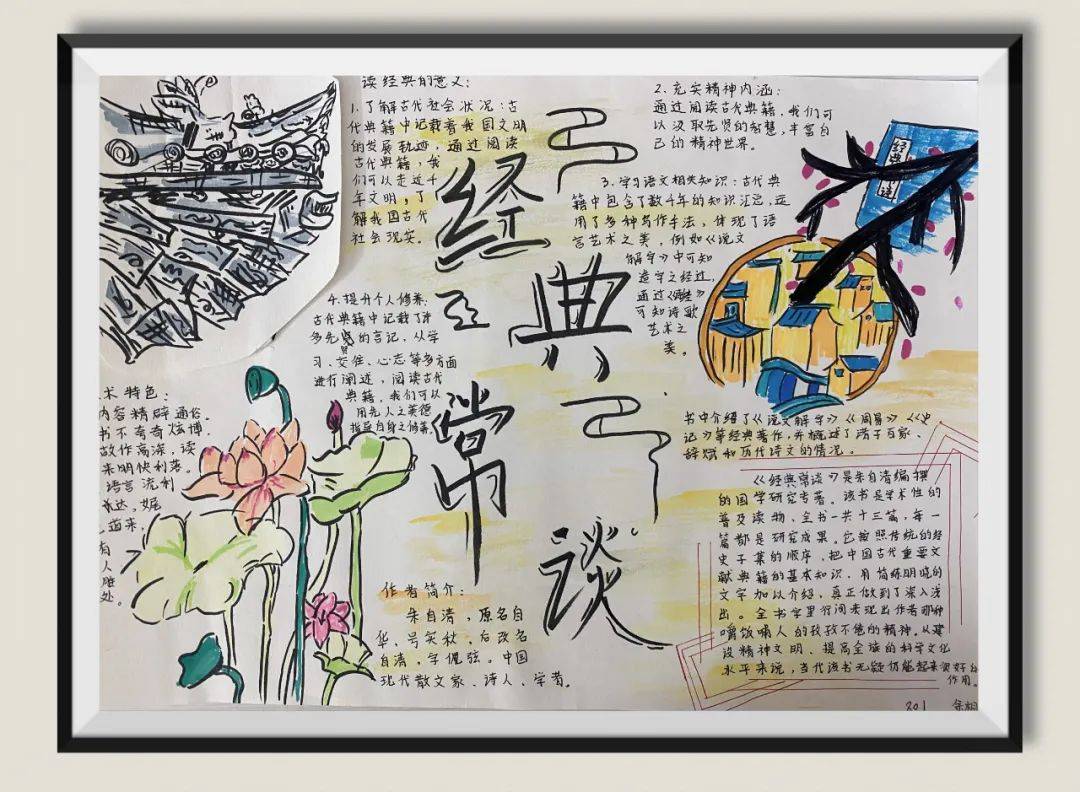 读经典的意义:
1.了解古代社会状况:古
代典籍中记载着我国文明
的发展轨迹,通过阅读
古代典籍,我
们可以走过千
年文明,了
解我国古代
社会现实。
2.充实精神内涵:
通过阅读古代典籍,我们可
以汲取先贤的智慧,丰富自
己的精神世界。
3.学习语文相关知识:古代典
籍中包含了数千年的知识汇总,运
用了多种写作手法,体现了语
言艺术之美,例如《说文
解字》中可知
造字之经过,
通过《诗经》
可知诗歌
艺术之
美。
4.提升个人修养:
古代典籍中记载了许
多先贤的言记,从学
习、交往、心志等多方面
进行阐述,阅读古代
典籍,我们可以
用先人之美德
指导自身之修养。
经典常谈
经典常谈
术特色:
内容精辟通俗。
书不夸奇炫博,
故作高深,读
来明快利落。
语言流利
表达,娓
道来,
有
人胜
处。
作者简介:
朱自清,原名自
华、号实秋,后改名
自清,字佩弦。中国
现代散文家、诗人、学者。
书中介绍了《说文解字》《周易》《史
记》等经典著作,并概述了诸子百家、
辞赋和历代诗文的情况。
《经典常谈》是朱自清编撰
的国学研究专著。该书是学术性的
普及读物,全书一共十三篇,每一
篇都是研究成果。它按照传统的经
史子集的顺序,把中国古代重要文
献典籍的基本知识,用简练明晓的
文字加以介绍,真正做到了深入浅
出。全书字里行间表现出作者那种
嚼饭哺人的孜孜不倦的精神。从建
设精神文明、提高全族的科学文化
水平来说,当代该书无疑仍能起来很好的
作用。
201